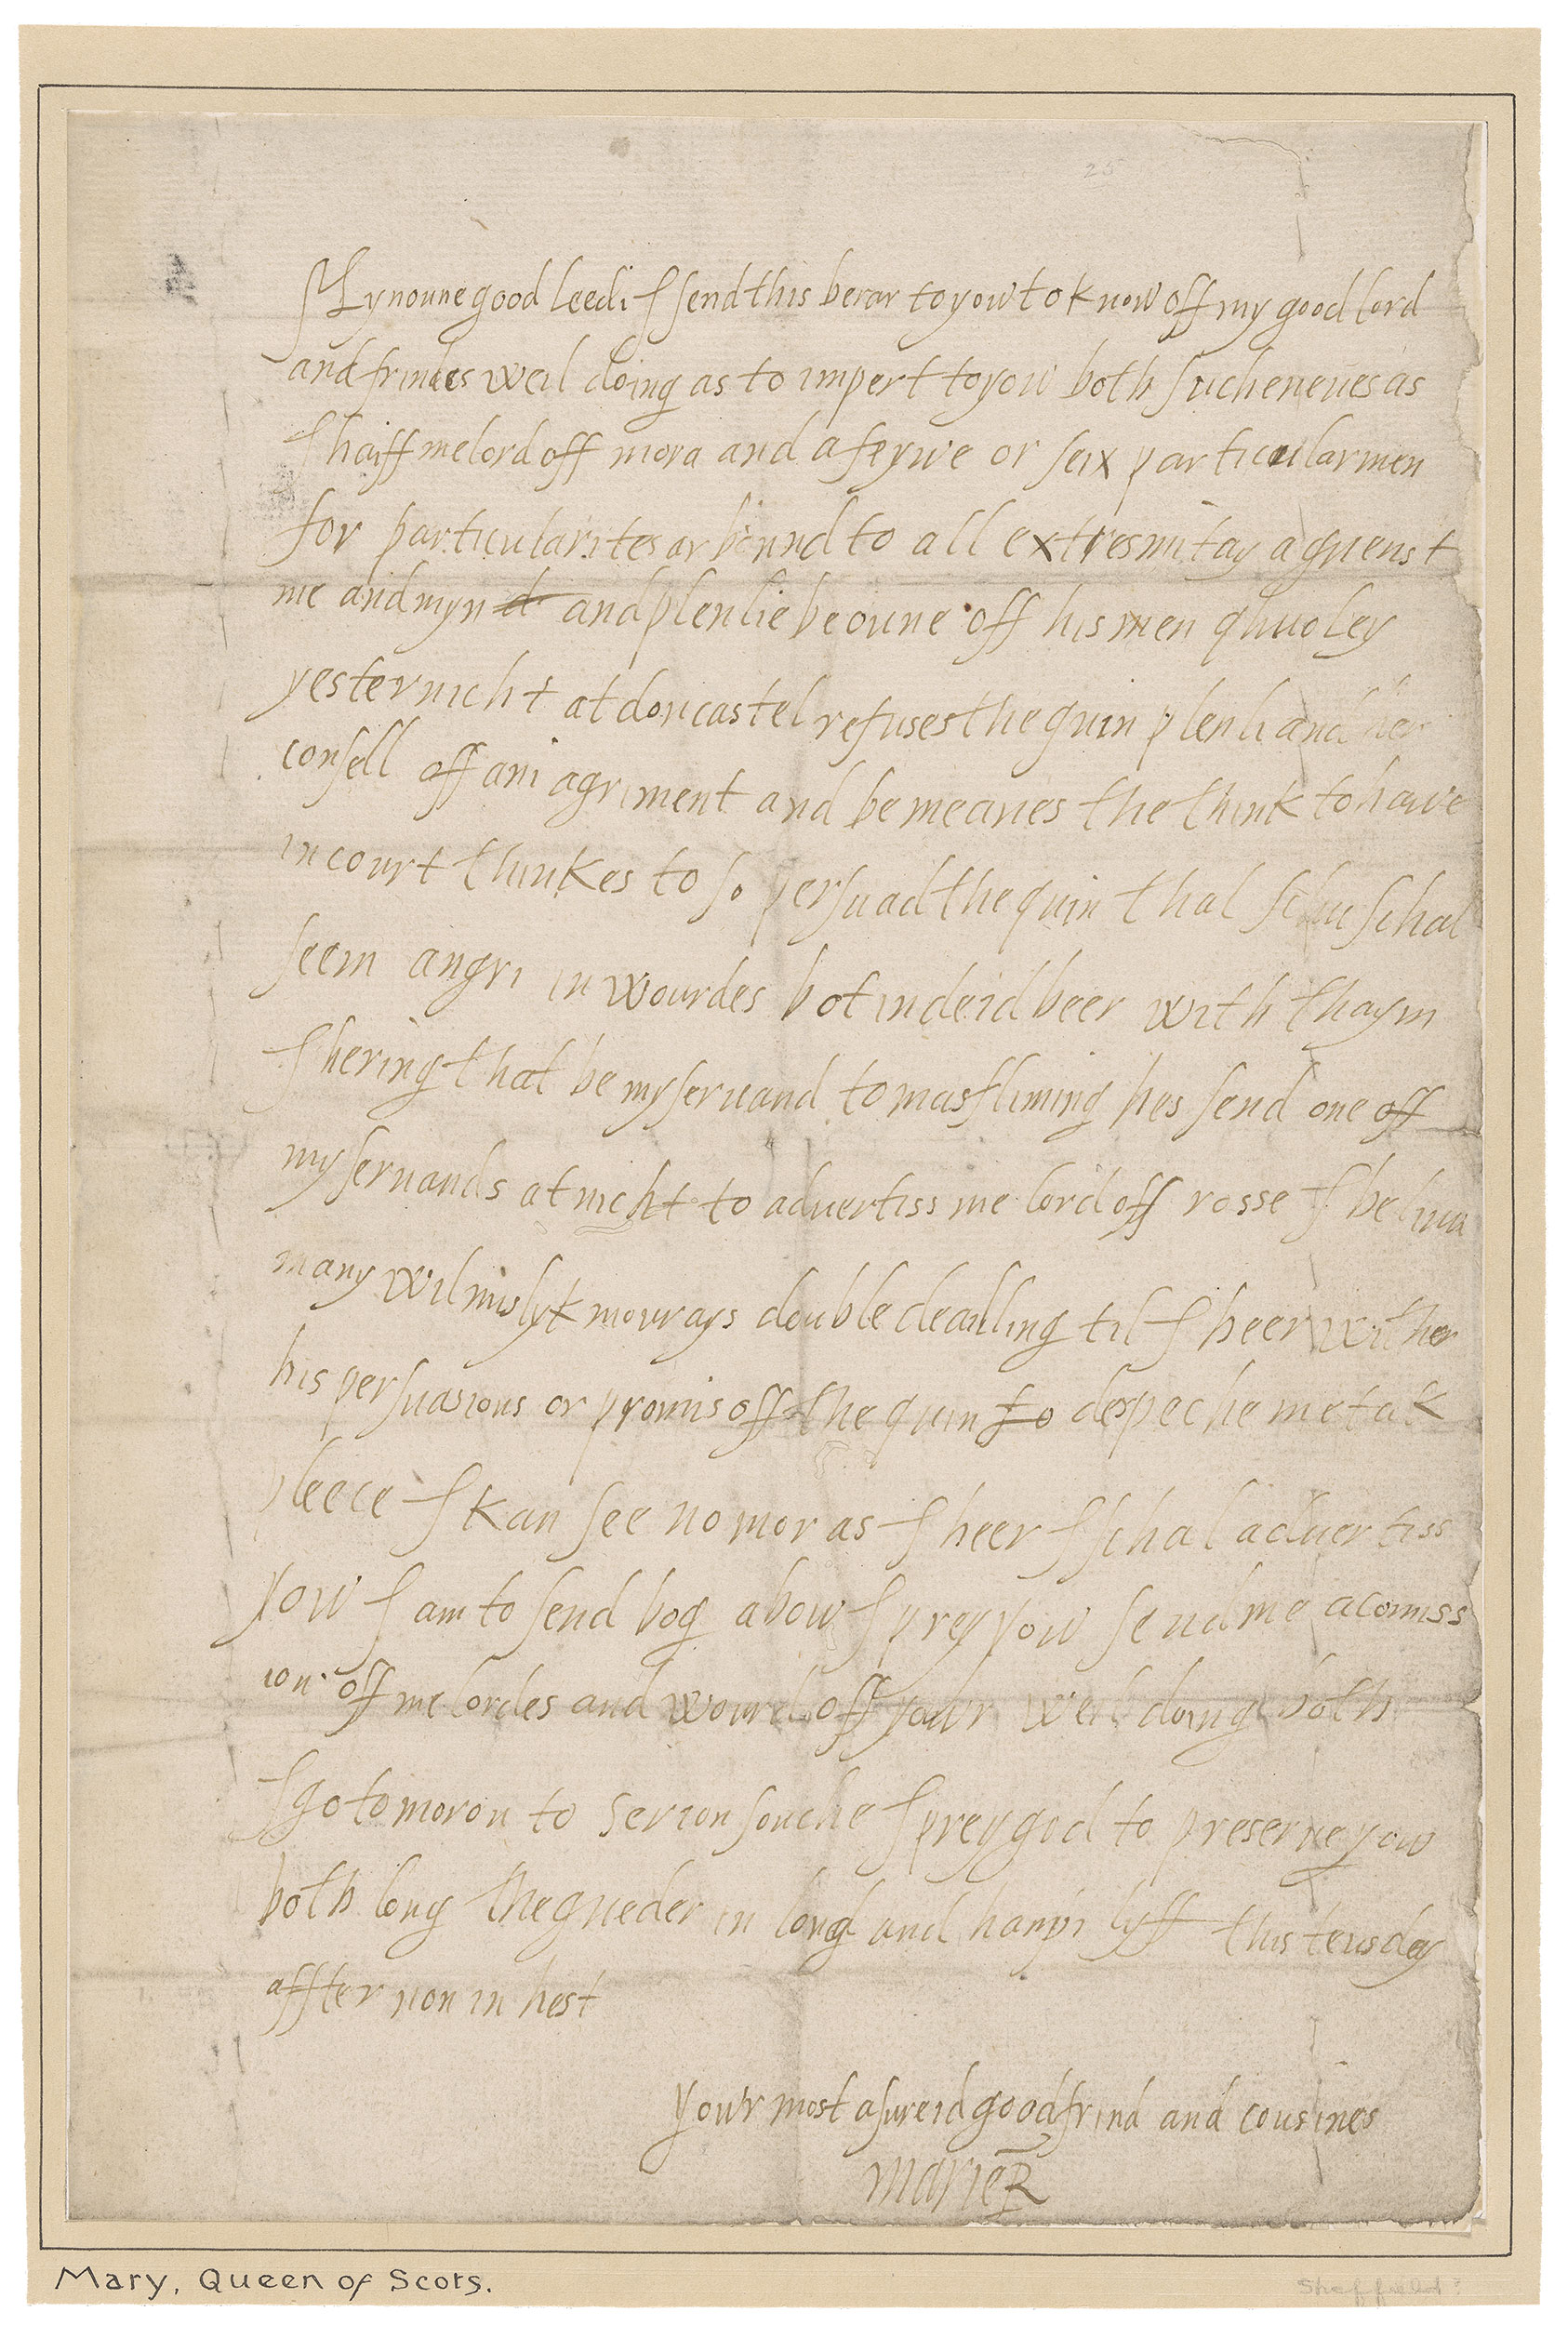 25
My noune good leedi I send this berar to yow to know off my good lord
and frindes weil doing as to impert to yow both sucheneues as
I haiff me lord off mora and a feywe or seix particular men
for particularites ar bound to all extresmitay aguenst
me and myn and plenlie be oune off his men qhuo ley
yesternicht at doncastel refuses the quin plenli and her
consell off ani agriment and be meanes the think to have
in court thinkes to so persuad the quin that schu schal
seem angri in wourdes bot in deid beer with thaym
I hering that be my seruand tomas fliming hes send one off
my seruands at nicht to aduertiss me lord off rosse I beliuu
many wil mislyk mourays double deailling til I heer wither
his persuasions or promis off the quin to despeche me tak
pleece I kan see no mor as I heer I schal aduertiss
yow I am to send bog abow I prey yow send me a comiss
ion off me lordes and wourd off your weil doing both
I go to moron to serion souche I prey god to preserue yow
both long thegueder in long and hampi lyff this teusdey
affter non in hest
your most asureid good frind and cousines
Marie R
Mary, Queen of Scots.
Sheffield?